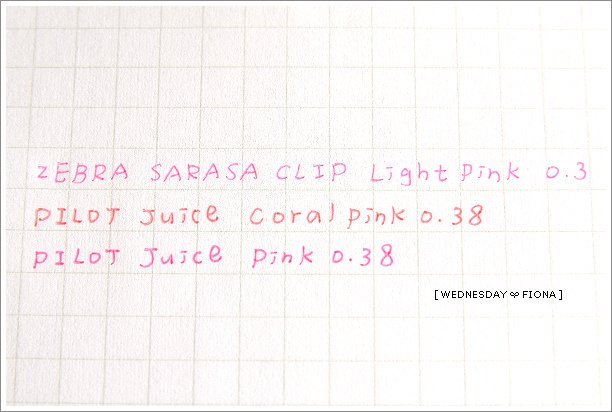 ZEBRA SARASA CLIP Light Pink 0.3
PILOT Juice Coral pink 0.38
PILOT Juice pink 0.38
[ WEDNESDAY ∞ FIONA ]